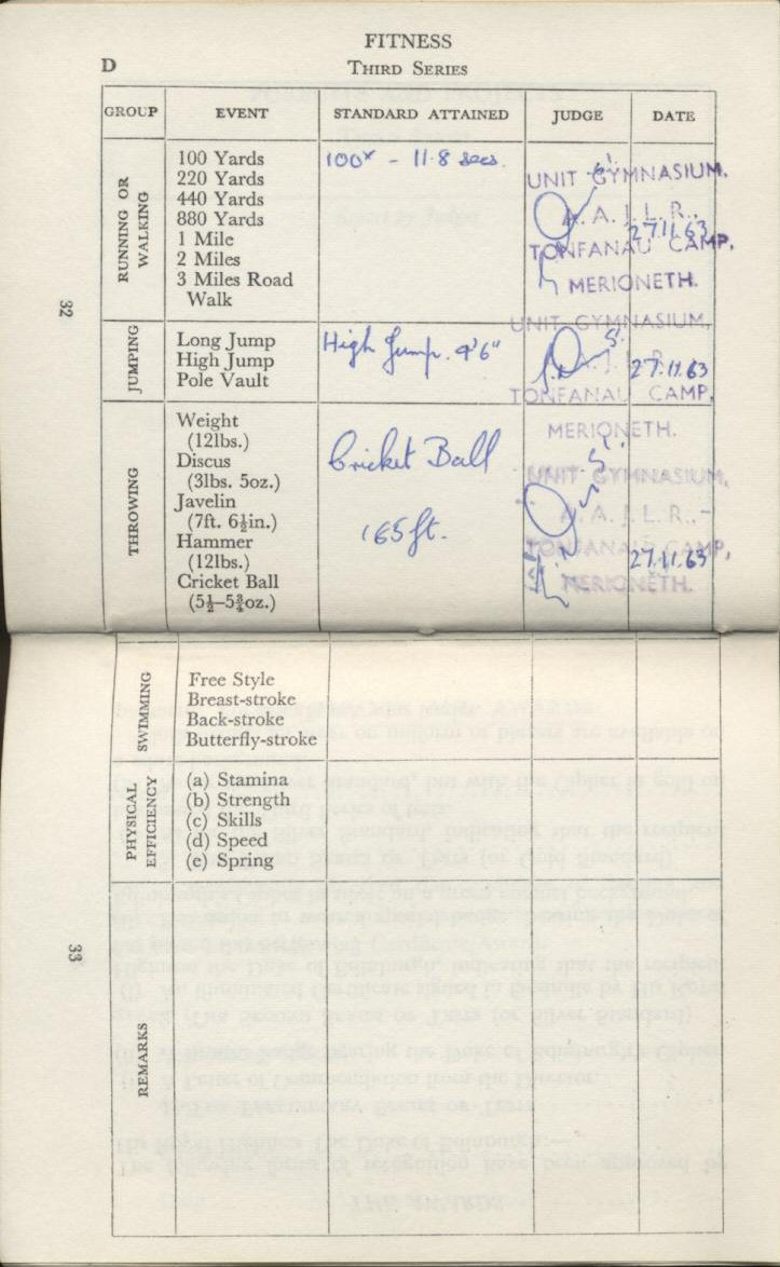 FITNESS
D
THIRD SERIES
GROUP EVENT STANDARD ATTAINED JUDGE DATE
RUNNING OR WALKING
100 Yards
220 Yards
440 Yards
880 Yards
1 Mile
2 Miles
3 Miles Road
Walk
100x - 11.8 secs.
UNIT GYMNASIUM.
A. A. J. L. R.,
27.11.63
TONFANAU CAMP,
MERIONETH.
32
JUMPING
Long Jump
High Jump
Pole Vault
High Jump. 4'6"
UNIT GYMNASIUM,
27.11.63
TONFANAU CAMP,
MERIONETH.
THROWING
Weight
(12lbs.)
Discus
(3lbs. 5oz.)
Javelin
(7ft. 6½in.)
Hammer
(12lbs.)
Cricket Ball
(5½–5¾oz.)
Cricket Ball
165 ft.
UNIT GYMNASIUM,
A. A. J. L. R.,
TONFANAU CAMP,
27.11.63
MERIONETH.
SWIMMING
Free Style
Breast-stroke
Back-stroke
Butterfly-stroke
PHYSICAL EFFICIENCY
(a) Stamina
(b) Strength
(c) Skills
(d) Speed
(e) Spring
33
REMARKS